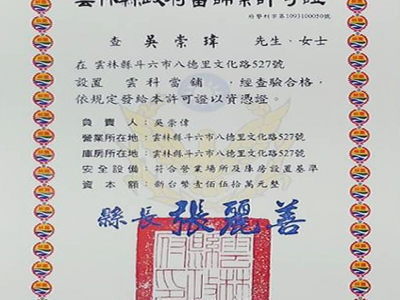 雲林縣政府當舖業許可證
府警刑字第1093100050號
查 吳崇瑋 先生、女士
在 雲林縣斗六市八德里文化路527號
設置 雲科當舖，經查驗合格，
依規定發給本許可證以資憑證。
負責人：吳崇偉
營業所在地：雲林縣斗六市八德里文化路527號
庫房所在地：雲林縣斗六市八德里文化路527號
安全設備：符合營業場所及庫房設置基準
資本額：新台幣壹佰伍拾萬元整
縣長 張麗善